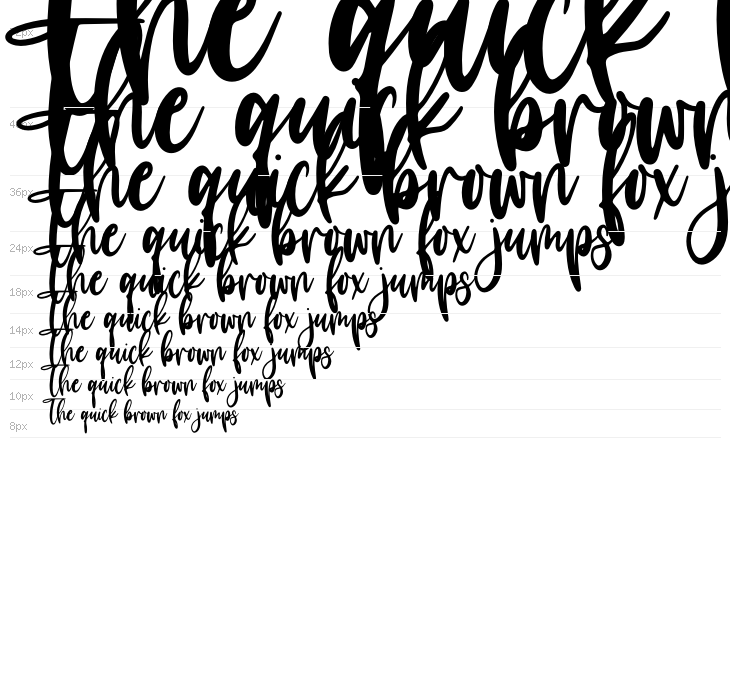 The quick
The quick brown
36px The quick brown fox j
24px The quick brown fox jumps
18px The quick brown fox jumps
14px The quick brown fox jumps
12px The quick brown fox jumps
10px The quick brown fox jumps
8px The quick brown fox jumps